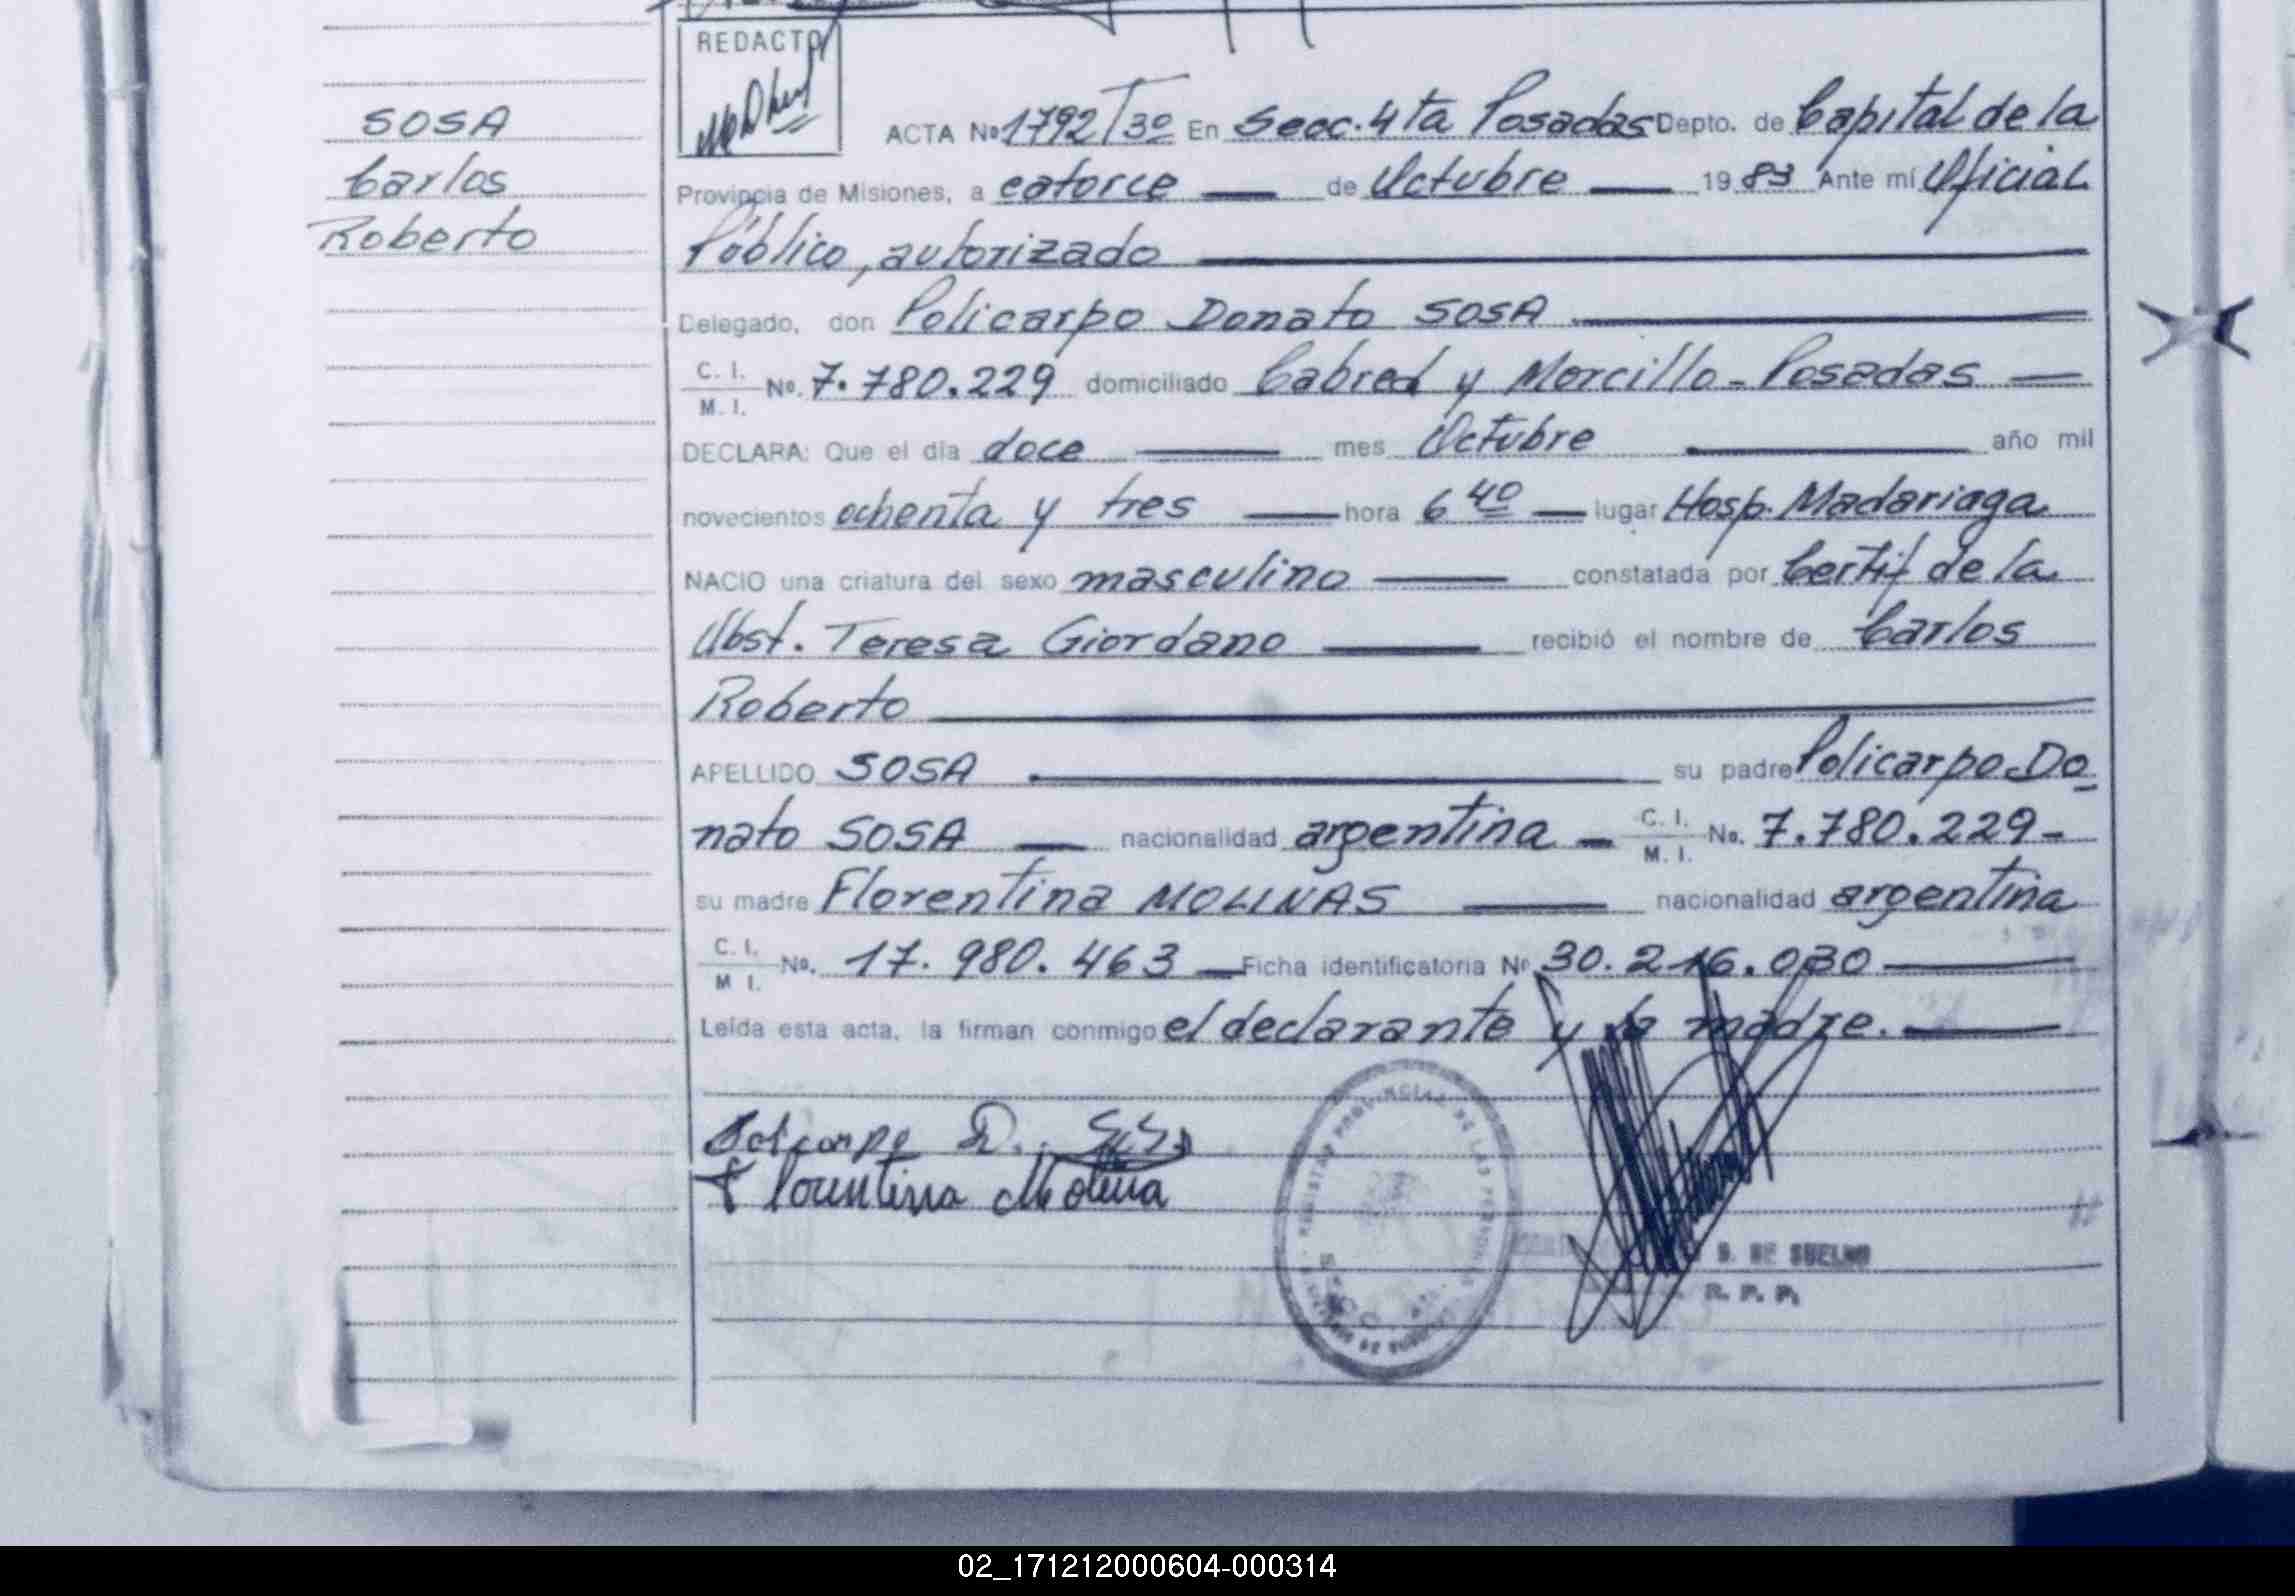 REDACTO
SOSA
Carlos
Roberto
ACTA Nº 1792/Tº 3º En Secc. 4ta Posadas Depto. de Capital de la
Provincia de Misiones, a catorce de Octubre 1983 Ante mí Oficial
Público, autorizado
Delegado, don Policarpo Donato SOSA
C. I.
M. I. Nº. 7.780.229 domiciliado Cabred y Morcillo - Posadas
DECLARA: Que el día doce mes Octubre año mil
novecientos ochenta y tres hora 6 40 lugar Hosp. Madariaga
NACIO una criatura del sexo masculino constatada por Certif de la
Obst. Teresa Giordano recibió el nombre de Carlos
Roberto
APELLIDO SOSA su padre Policarpo Do
nato SOSA nacionalidad argentina C. I. M. I. Nº. 7.780.229-
su madre Florentina MOLINAS nacionalidad argentina
C. I.
M I. Nº. 17.980.463 Ficha identificatoria Nº 30.216.030
Leída esta acta, la firman conmigo el declarante y la madre.
Policarpo D. Sosa
Florentina Molina
REGISTRO PROVINCIAL DE LAS PERSONAS
SECC.
R. P. P.
02_171212000604-000314